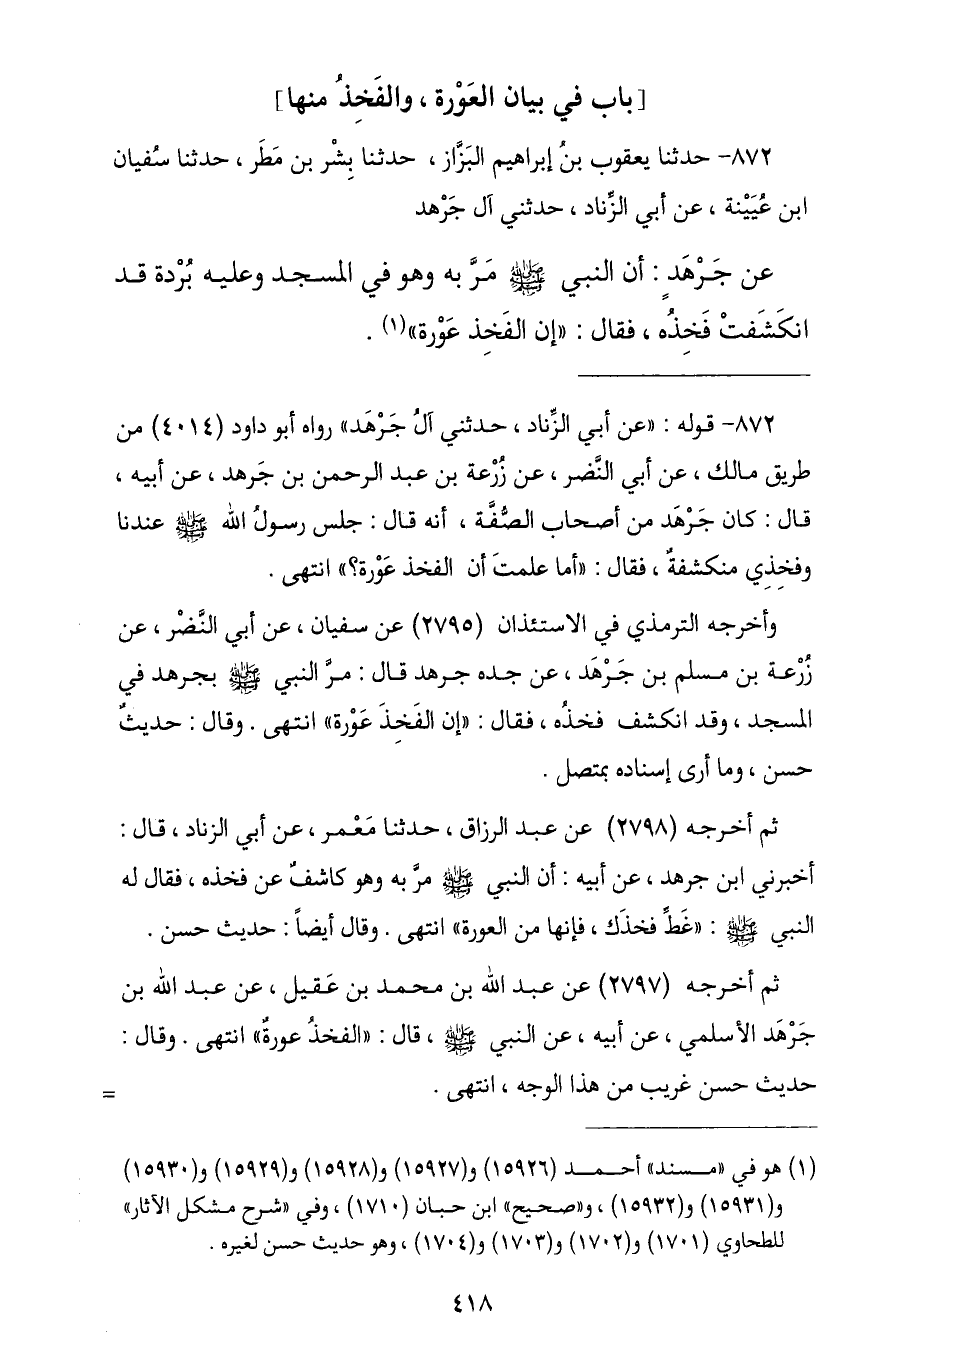 [باب في بيان العَوْرة ، والفَخِذُ منها]
٨٧٢- حدثنا يعقوب بنُ إبراهيم البَزَّاز ، حدثنا بِشْر بن مَطَر ، حدثنا سُفيان
ابن عُيَيْنة ، عن أبي الزِّناد ، حدثني آل جَرْهد
عن جَرْهَدٍ : أن النبي ﷺ مَرَّ به وهو في المسجد وعليه بُرْدة قد
انكَشَفتْ فَخِذُه ، فقال : «إن الفَخِذ عَوْرة»(١) .
٨٧٢- قوله : «عن أبي الزِّناد ، حدثني آلُ جَرْهَد» رواه أبو داود (٤٠١٤) من
طريق مالك ، عن أبي النَّضر ، عن زُرْعة بن عبد الرحمن بن جَرهد ، عن أبيه ،
قال : كان جَرْهَد من أصحاب الصُّفَّة ، أنه قال : جلس رسولُ الله ﷺ عندنا
وفخِذِي منكشفةٌ ، فقال : «أما علمتَ أن الفخذ عَوْرة؟» انتهى .
وأخرجه الترمذي في الاستئذان (٢٧٩٥) عن سفيان ، عن أبي النَّضْر ، عن
زُرْعة بن مسلم بن جَرْهَد ، عن جده جرهد قال : مرَّ النبي ﷺ بجرهد في
المسجد ، وقد انكشف فخذُه ، فقال : «إن الفَخِذَ عَوْرة» انتهى . وقال : حديثٌ
حسن ، وما أرى إسناده بمتصل .
ثم أخرجه (٢٧٩٨) عن عبد الرزاق ، حدثنا مَعْمر ، عن أبي الزناد ، قال :
أخبرني ابن جرهد ، عن أبيه : أن النبي ﷺ مرَّ به وهو كاشفٌ عن فخذه ، فقال له
النبي ﷺ : «غَطِّ فخذَك ، فإنها من العورة» انتهى . وقال أيضاً : حديث حسن .
ثم أخرجه (٢٧٩٧) عن عبد الله بن محمد بن عَقيل ، عن عبد الله بن
جَرْهَد الأسلمي ، عن أبيه ، عن النبي ﷺ ، قال : «الفخذُ عورةٌ» انتهى . وقال :
حديث حسن غريب من هذا الوجه ، انتهى .
=
(١) هو في «مسند» أحمد (١٥٩٢٦) و(١٥٩٢٧) و(١٥٩٢٨) و(١٥٩٢٩) و(١٥٩٣٠)
و(١٥٩٣١) و(١٥٩٣٢) ، و«صحيح» ابن حبان (١٧١٠) ، وفي «شرح مشكل الآثار»
للطحاوي (١٧٠١) و(١٧٠٢) و(١٧٠٣) و(١٧٠٤) ، وهو حديث حسن لغيره .
٤١٨